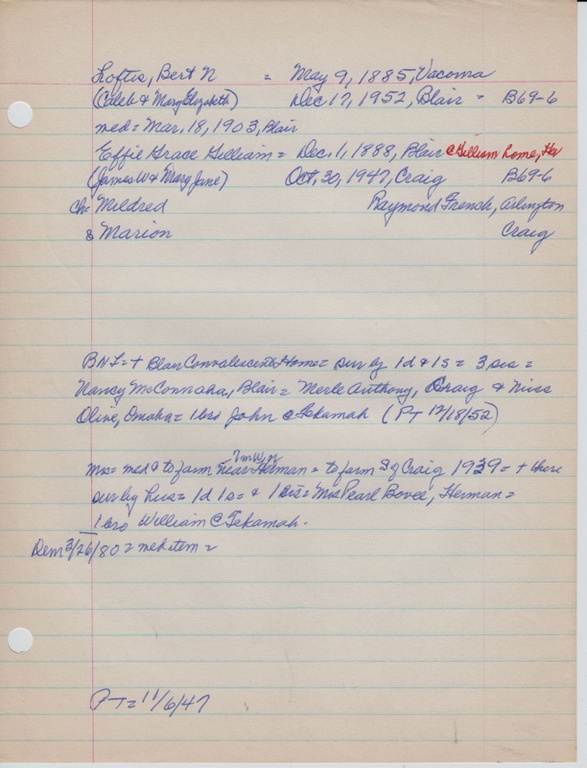 Loftis, Bert N = May 9, 1885, Vacoma
(Caleb & Mary Elizabeth) Dec 17, 1952, Blair - B69-6
med = Mar, 18, 1903, Blair
Effie Grace Gilliam = Dec, 1, 1888, Blair @ Gilliam home, Her
(James W & Mary Jane) Oct, 30, 1947, Craig B69-6
Ch: Mildred Raymond French, Arlington
8 Marion Craig
BNL = + Blair Convalescent Home = sur by 1d & 1s = 3 sis =
Nancy McConnaha, Blair = Merle Anthony, Craig & Miss
Olive, Omaha = 1 bro John @ Tekamah (PT 12/18/52)
7 m W of
Mrs = med & to farm near Herman = to farm S of Craig 1939 = + there
sur by hus = 1d 1s = & 1 sis = Mrs Pearl Bovee, Herman =
1 bro William @ Tekamah.
Dem 3/26/80 = med item =
PT = 11/6/47